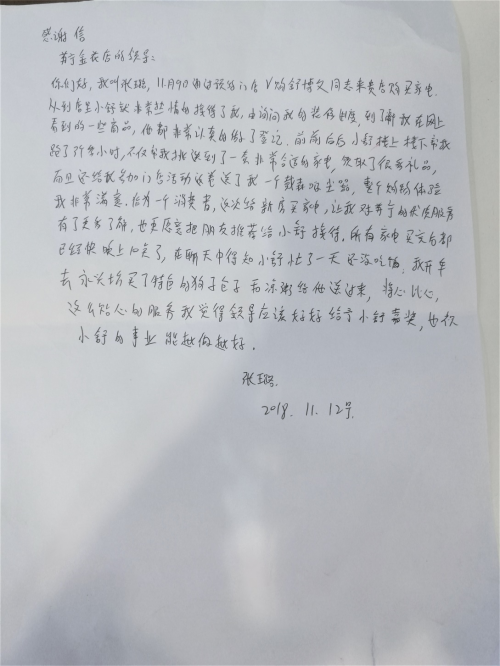 感谢信
苏宁金花店的领导:
你们好,我叫张璐,11月9日通过预约门店V购舒博文同志来贵店购买家电.
从到店里小舒就非常热情的接待了我,由询问我的装修进度,到了解我在网上
看到的一些商品,他都非常认真的做了登记.前前后后小舒楼上楼下帮我
跑了3个小时,不仅帮我挑选到了一套非常合适的家电,领取了很多礼品,
而且还给我参加门店活动返卷送了我一个戴森吸尘器,整个购物体验
我非常满意.作为一个消费者,这次给新房买家电,让我对苏宁的优质服务
有了更多了解,也更愿意把朋友推荐给小舒接待.所有家电买完后都
已经快晚上10点了,在聊天中得知小舒忙了一天还没吃饭.我开车
去永兴坊买了特色的狗子包子和凉粥给他送过来,将心比心,
这么贴心的服务我觉得领导应该好好给予小舒嘉奖,也祝
小舒的事业能越做越好.
张璐.
2018.11.12号.